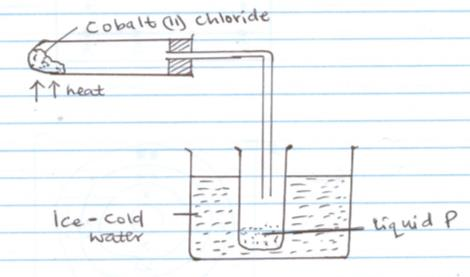 Cobalt (II) chloride
heat
Ice-cold
water
liquid P